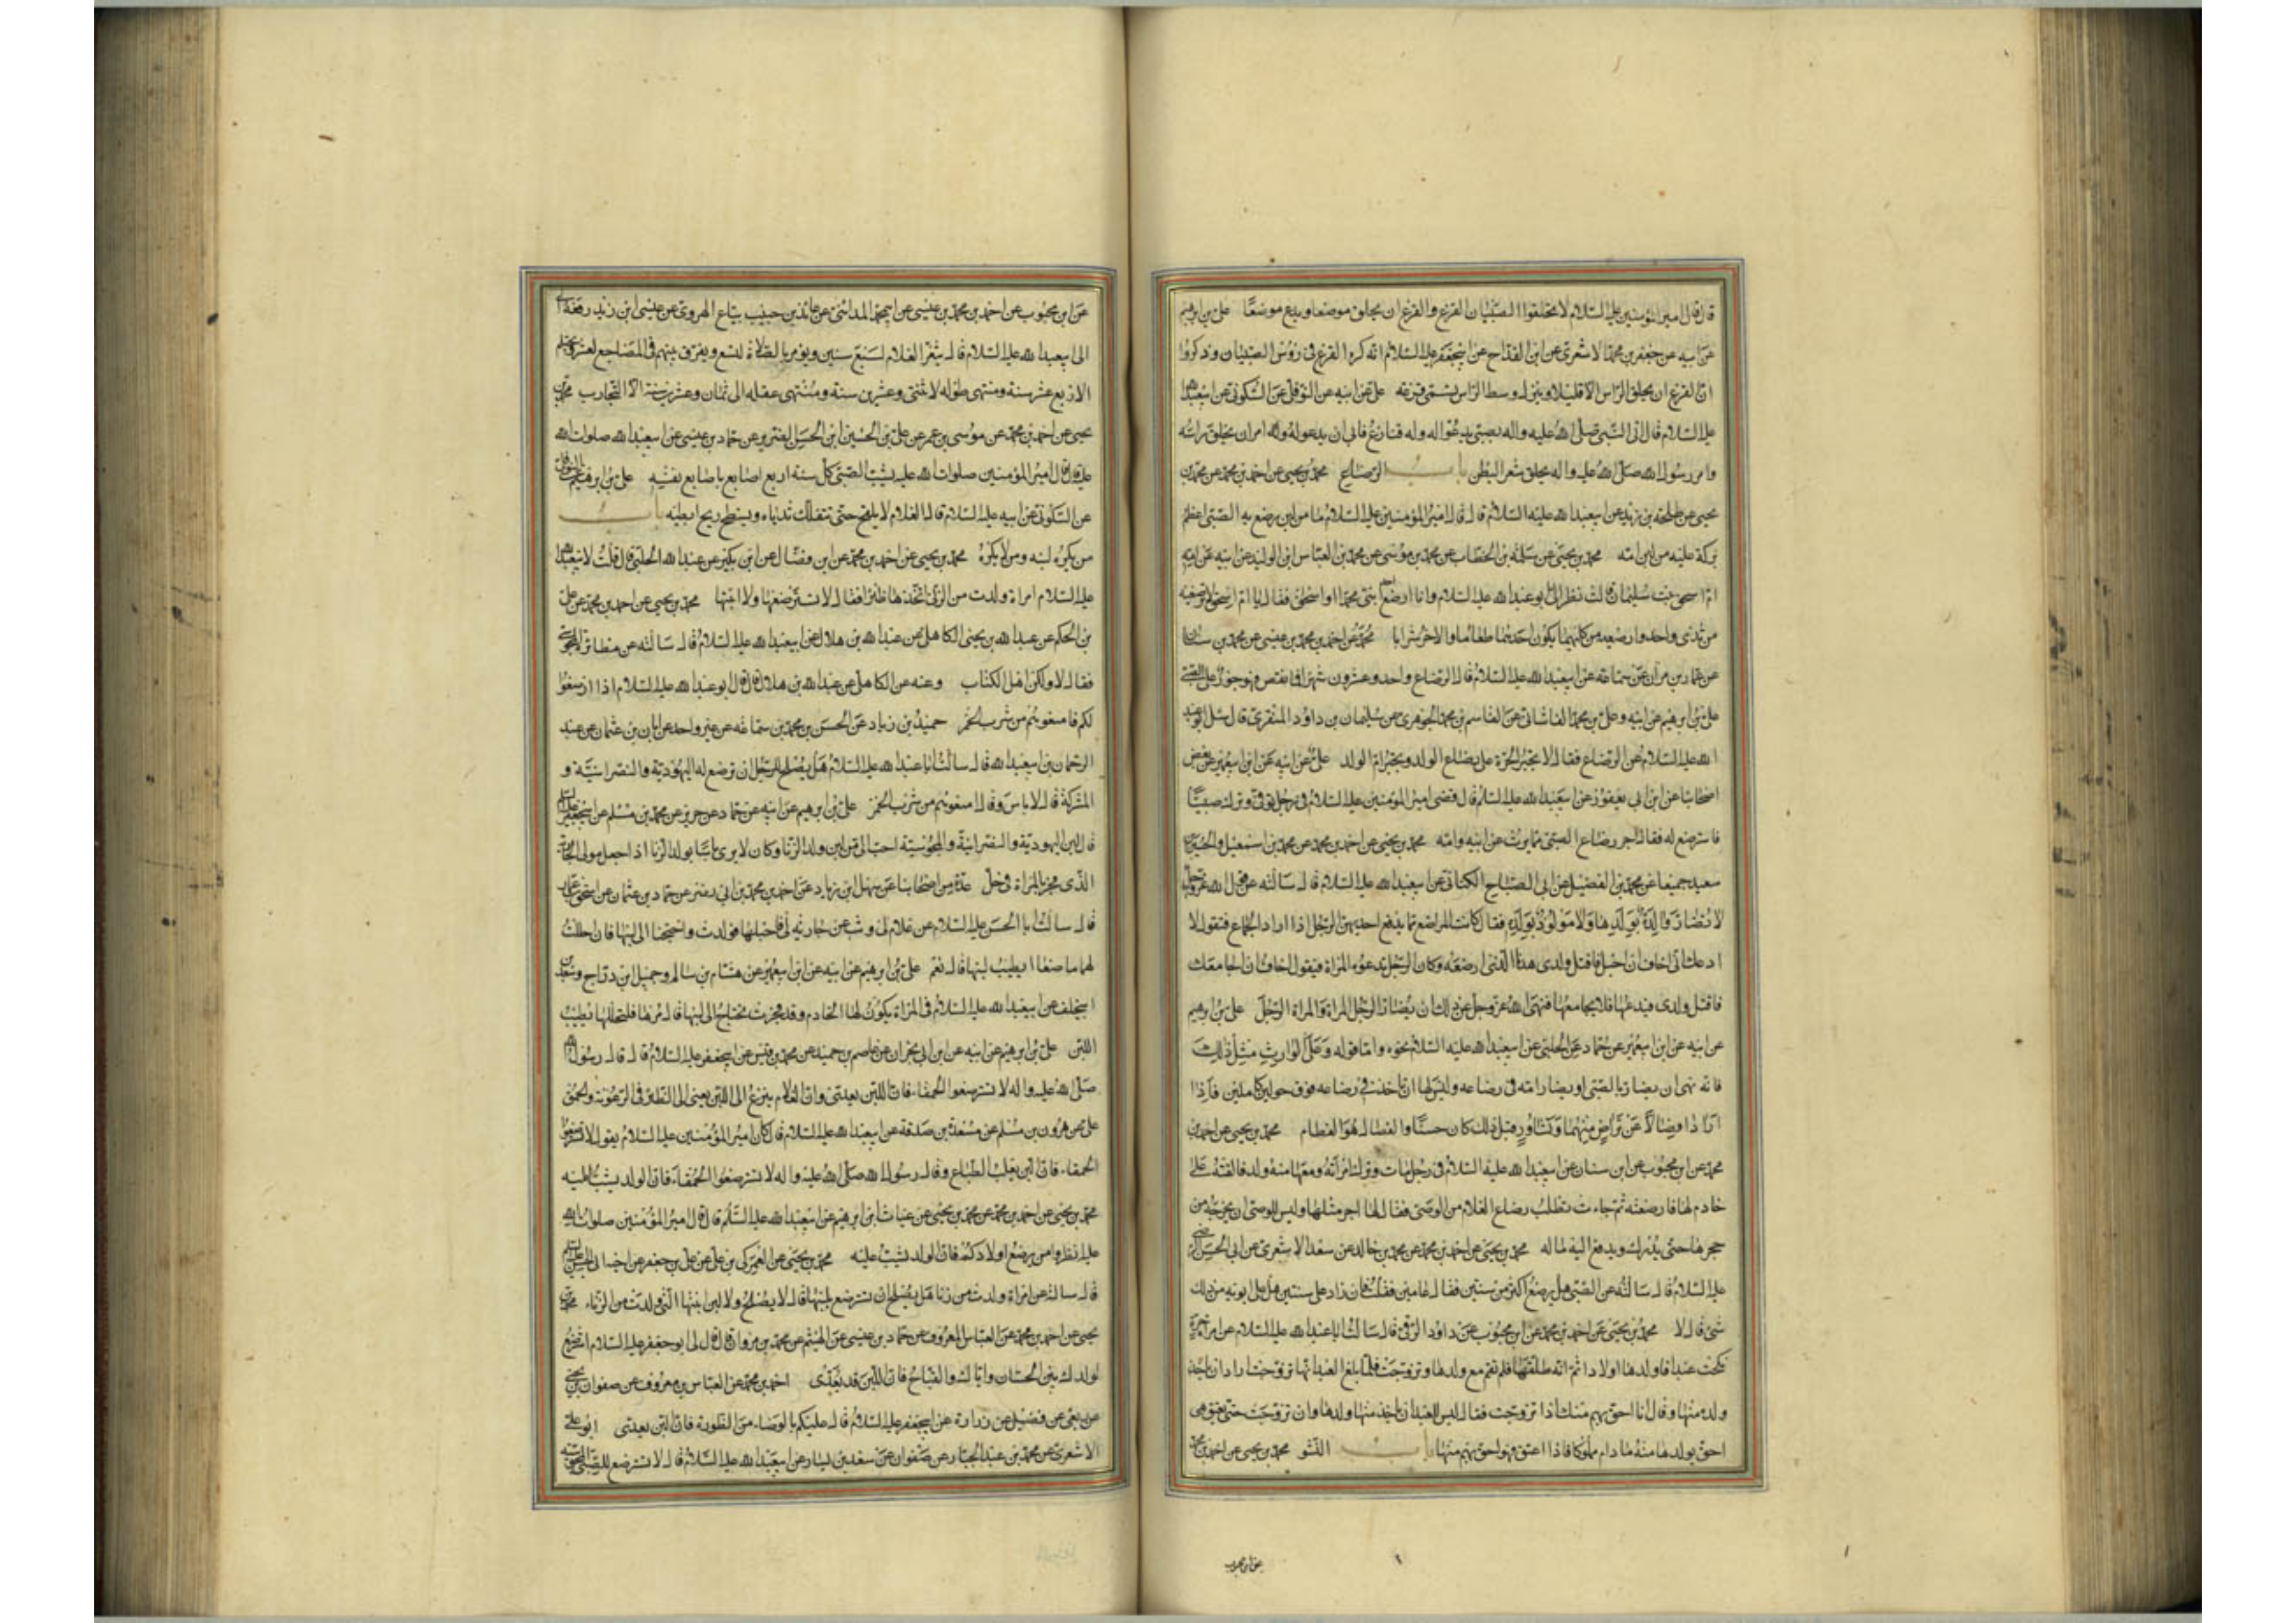 قال قال امير المؤمنين عليه السلام لا تحلقوا الصبيان القزع والقزع ان يحلق موضعا ويدع موضعا علي بن ابرهيم
عن ابيه عن جعفر بن محمد الاشعري عن ابن القداح عن ابي جعفر عليه السلام انه كره القزع في رؤس الصبيان وذكروا
ان القزع ان يحلق الراس الا قليلا ويترك وسط الراس تسمى قزعه علي عن ابيه عن النوفلي عن السكوني عن ابي عبد الله
عليه السلام قال اتى النبي صلى الله عليه واله بصبي يدعو له وله قنازع فابى ان يدعو له وامر ان يحلق راسه
وامر رسول الله صلى الله عليه واله بحلق شعر البطن باب الرضاع محمد بن يحيى عن احمد بن محمد عن محمد بن
يحيى عن طلحه بن زيد عن ابي عبد الله عليه السلام قال قال امير المؤمنين عليه السلام ما من لبن يرضع به الصبي اعظم
بركة عليه من لبن امه محمد بن يحيى عن سلمه بن الخطاب عن محمد بن موسى عن محمد بن العباس ابن الوليد عن ابيه عن امه
ام اسحق بنت سليمان قالت نظر الي ابو عبد الله عليه السلام وانا ارضع احد ابني محمد او اسحق فقال يا ام اسحق لا ترضعيه
من ثدي واحد وارضعيه من كليهما يكون احدهما طعاما والاخر شرابا محمد عن احمد بن محمد بن عيسى عن محمد بن سنان
عن عمار بن مروان عن سماعه عن ابي عبد الله عليه السلام قال الرضاع واحد وعشرون شهرا فما نقص فهو جور على الصبي
علي بن ابرهيم عن ابيه وعلي بن محمد القاشاني عن القاسم بن محمد الجوهري عن سليمان بن داود المنقري قال سئل ابو عبد
الله عليه السلام عن الرضاع فقال لا تجبر الحرة على رضاع الولد وتجبر ام الولد علي عن ابيه عن ابن ابي عمير عن بعض
اصحابنا عن ابن ابي يعفور عن ابي عبد الله عليه السلام قال قضى امير المؤمنين عليه السلام في رجل توفي وترك صبيا
فاسترضع له فقال اجر رضاع الصبي مما يرث عن ابيه وامه محمد بن يحيى عن احمد بن محمد عن محمد بن اسمعيل والحسين بن
سعيد جميعا عن محمد بن الفضيل عن ابي الصباح الكناني عن ابي عبد الله عليه السلام قال سالته عن قول الله عز وجل
لا تضار والدة بولدها ولا مولود له بولده فقال كانت المراضع مما يدفع احديهن الرجل اذا اراد الجماع فتقول لا
ادعك اني اخاف ان احبل فاقتل ولدي هذا الذي ارضعه وكان الرجل تدعوه المراة فيقول اخاف ان اجامعك
فاقتل ولدي فيدعها فلا يجامعها فنهى الله عز وجل عن ذلك ان يضار الرجل المراة والمراة الرجل علي بن ابرهيم
عن ابيه عن ابن ابي عمير عن حماد عن الحلبي عن ابي عبد الله عليه السلام نحوه واما قوله وعلى الوارث مثل ذلك
فانه نهى ان يضار بالصبي او يضار امه في رضاعه وليس لها ان تاخذ في رضاعه فوق حولين كاملين فاذا
ارادا فصالا عن تراض منهما وتشاور قبل ذلك كان حسنا والفصال هو الفطام محمد بن يحيى عن احمد بن
محمد عن ابن محبوب عن ابن سنان عن ابي عبد الله عليه السلام في رجل مات وترك امراته ومعها منه ولد فالقته على
خادم لها فارضعته ثم جاءت تطلب رضاع الغلام من الوصي فقال لها اجر مثلها وليس للوصي ان يخرجه من
حجرها حتى يدرك ويدفع اليه ماله محمد بن يحيى عن احمد بن محمد عن محمد بن خالد عن سعد الاشعري عن ابي الحسن الرضا
عليه السلام قال سالته عن الصبي هل يرضع اكثر من سنتين فقال عامين فقلت فان زاد على سنتين هل على ابويه من ذلك
شئ قال لا محمد بن يحيى عن احمد بن محمد عن ابن محبوب عن داود الرقي قال سالت ابا عبد الله عليه السلام عن امراة حرة
نكحت عبدا فاولدها اولادا ثم انه طلقها فلم تقم مع ولدها وتزوجت فلما بلغ العبد انها تزوجت اراد ان ياخذ
ولده منها وقال انا احق بهم منك اذا تزوجت فقال ليس للعبد ان ياخذ منها ولدها وان تزوجت حتى يعتق هي
احق بولدها منه ما دام مملوكا فاذا اعتق فهو احق بهم منها باب النشو محمد بن يحيى عن احمد بن محمد
عن ابن محبوب
عن ابن محبوب عن احمد بن محمد بن عيسى عن ابي محمد المدائني عن عائذ بن حبيب بياع الهروي عن عيسى ابن زيد رفعه
الى ابي عبد الله عليه السلام قال يثغر الغلام لسبع سنين ويؤمر بالصلاة لتسع ويفرق بينهم في المضاجع لعشر ويحتلم
لاربع عشر سنة ومنتهى طوله لاثنتي وعشرين سنة ومنتهى عقله الى ثمان وعشرين سنة الا التجارب محمد بن
يحيى عن احمد بن محمد عن موسى بن عمر عن علي بن الحسين ابن الحسن الضرير عن حماد بن عيسى عن ابي عبد الله صلوات الله
عليه قال قال امير المؤمنين صلوات الله عليه يشب الصبي كل سنة اربع اصابع باصابع نفسه علي بن ابرهيم عن ابيه عن النوفلي
عن السكوني عن ابيه عليه السلام قال الغلام لا يلقح حتى تتفلك ثدياه ويسطع ريح ابطيه باب
من يكره لبنه ومن لا يكره محمد بن يحيى عن احمد بن محمد عن ابن فضال عن ابن بكير عن عبيد الله الحلبي قال قلت لابي عبد الله
عليه السلام امراة ولدت من الزنى اتخذها ظئرا فقال لا تسترضعها ولا ابنتها محمد بن يحيى عن احمد بن محمد عن علي
بن الحكم عن عبد الله بن يحيى الكاهلي عن عبد الله بن هلال عن ابي عبد الله عليه السلام قال سالته عن مظائرة المجوسي
فقال لا ولكن اهل الكتاب وعنه عن الكاهلي عن عبد الله بن هلال قال قال ابو عبد الله عليه السلام اذا ارضعوا
لكم فامنعوهم من شرب الخمر حميد بن زياد عن الحسن بن محمد بن سماعه عن غير واحد عن ابان بن عثمان عن عبد
الرحمان بن ابي عبد الله قال سالت ابا عبد الله عليه السلام هل يصلح للرجل ان ترضع له اليهودية والنصرانية و
المشركة قال لا باس وقال امنعوهم من شرب الخمر علي بن ابرهيم عن ابيه عن حماد عن حريز عن محمد بن مسلم عن ابي جعفر عليه السلام
قال لبن اليهودية والنصرانية والمجوسية احب الي من لبن ولد الزنا وكان لا يرى باسا بولد الزنا اذا جعل مولى الجارية
الذي فجر بالمراة في حل عدة من اصحابنا عن سهل ابن زياد عن احمد بن محمد بن ابي نصر عن حماد بن عثمان عن اسحق بن عمار
قال سالت ابا الحسن عليه السلام عن غلام لي وثب على جارية لي فاحبلها فولدت واحتجنا الى لبنها فان احللت
لهما ما صنعا ايطيب لبنها قال نعم علي بن ابرهيم عن ابيه عن ابن ابي عمير عن هشام بن سالم وجميل ابن دراج وسعد بن
ابي خلف عن ابي عبد الله عليه السلام في المراة يكون لها الخادم قد فجرت تحتاج الى لبنها قال مرها فلتحللها يطيب
اللبن علي بن ابرهيم عن ابيه عن ابن ابي نجران عن عاصم بن حميد عن محمد بن قيس عن ابي جعفر عليه السلام قال قال رسول الله
صلى الله عليه واله لا تسترضعوا الحمقاء فان اللبن يعدي وان الغلام ينزع الى اللبن يعني الى الظئر في الرعونة والحمق
علي عن هرون بن مسلم عن مسعدة بن صدقة عن ابي عبد الله عليه السلام قال كان امير المؤمنين عليه السلام يقول لا تسترضعوا
الحمقاء فان اللبن يغلب الطباع وقال رسول الله صلى الله عليه واله لا تسترضعوا الحمقاء فان الولد يشب عليه
محمد بن يحيى عن احمد بن محمد عن محمد بن يحيى عن غياث ابن ابرهيم عن ابي عبد الله عليه السلم قال قال امير المؤمنين صلوات الله
عليه انظروا من يرضع اولادكم فان الولد يشب عليه محمد بن يحيى عن العمركي بن علي عن علي بن جعفر عن اخيه ابي الحسن عليه السلام
قال سالته عن امراة ولدت من زنا هل يصلح ان تسترضع بلبنها قال لا يصلح ولا لبن ابنتها التي ولدت من الزناء محمد بن
يحيى عن احمد بن محمد عن العباس المعروف عن حماد بن عيسى عن الهيثم عن محمد بن مروان قال قال لي ابو جعفر عليه السلام استرضع
لولدك بلبن الحسان واياك والقباح فان اللبن قد يعدي احمد بن محمد عن العباس بن معروف عن صفوان بن يحيى
عن ربعي عن فضيل عن زرارة عن ابي جعفر عليه السلام قال عليكم بالوضاء من الظؤرة فان اللبن يعدي ابو علي
الاشعري عن محمد بن عبد الجبار عن صفوان عن سعيد بن يسار عن ابي عبد الله عليه السلام قال لا تسترضع للصبي المجوسية